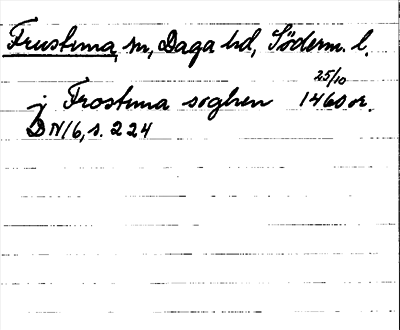 Frustuna, sn, Daga hd, Söderm. l.
25/10
j Frostuna soghen 1460 or.
DN 16, s. 224